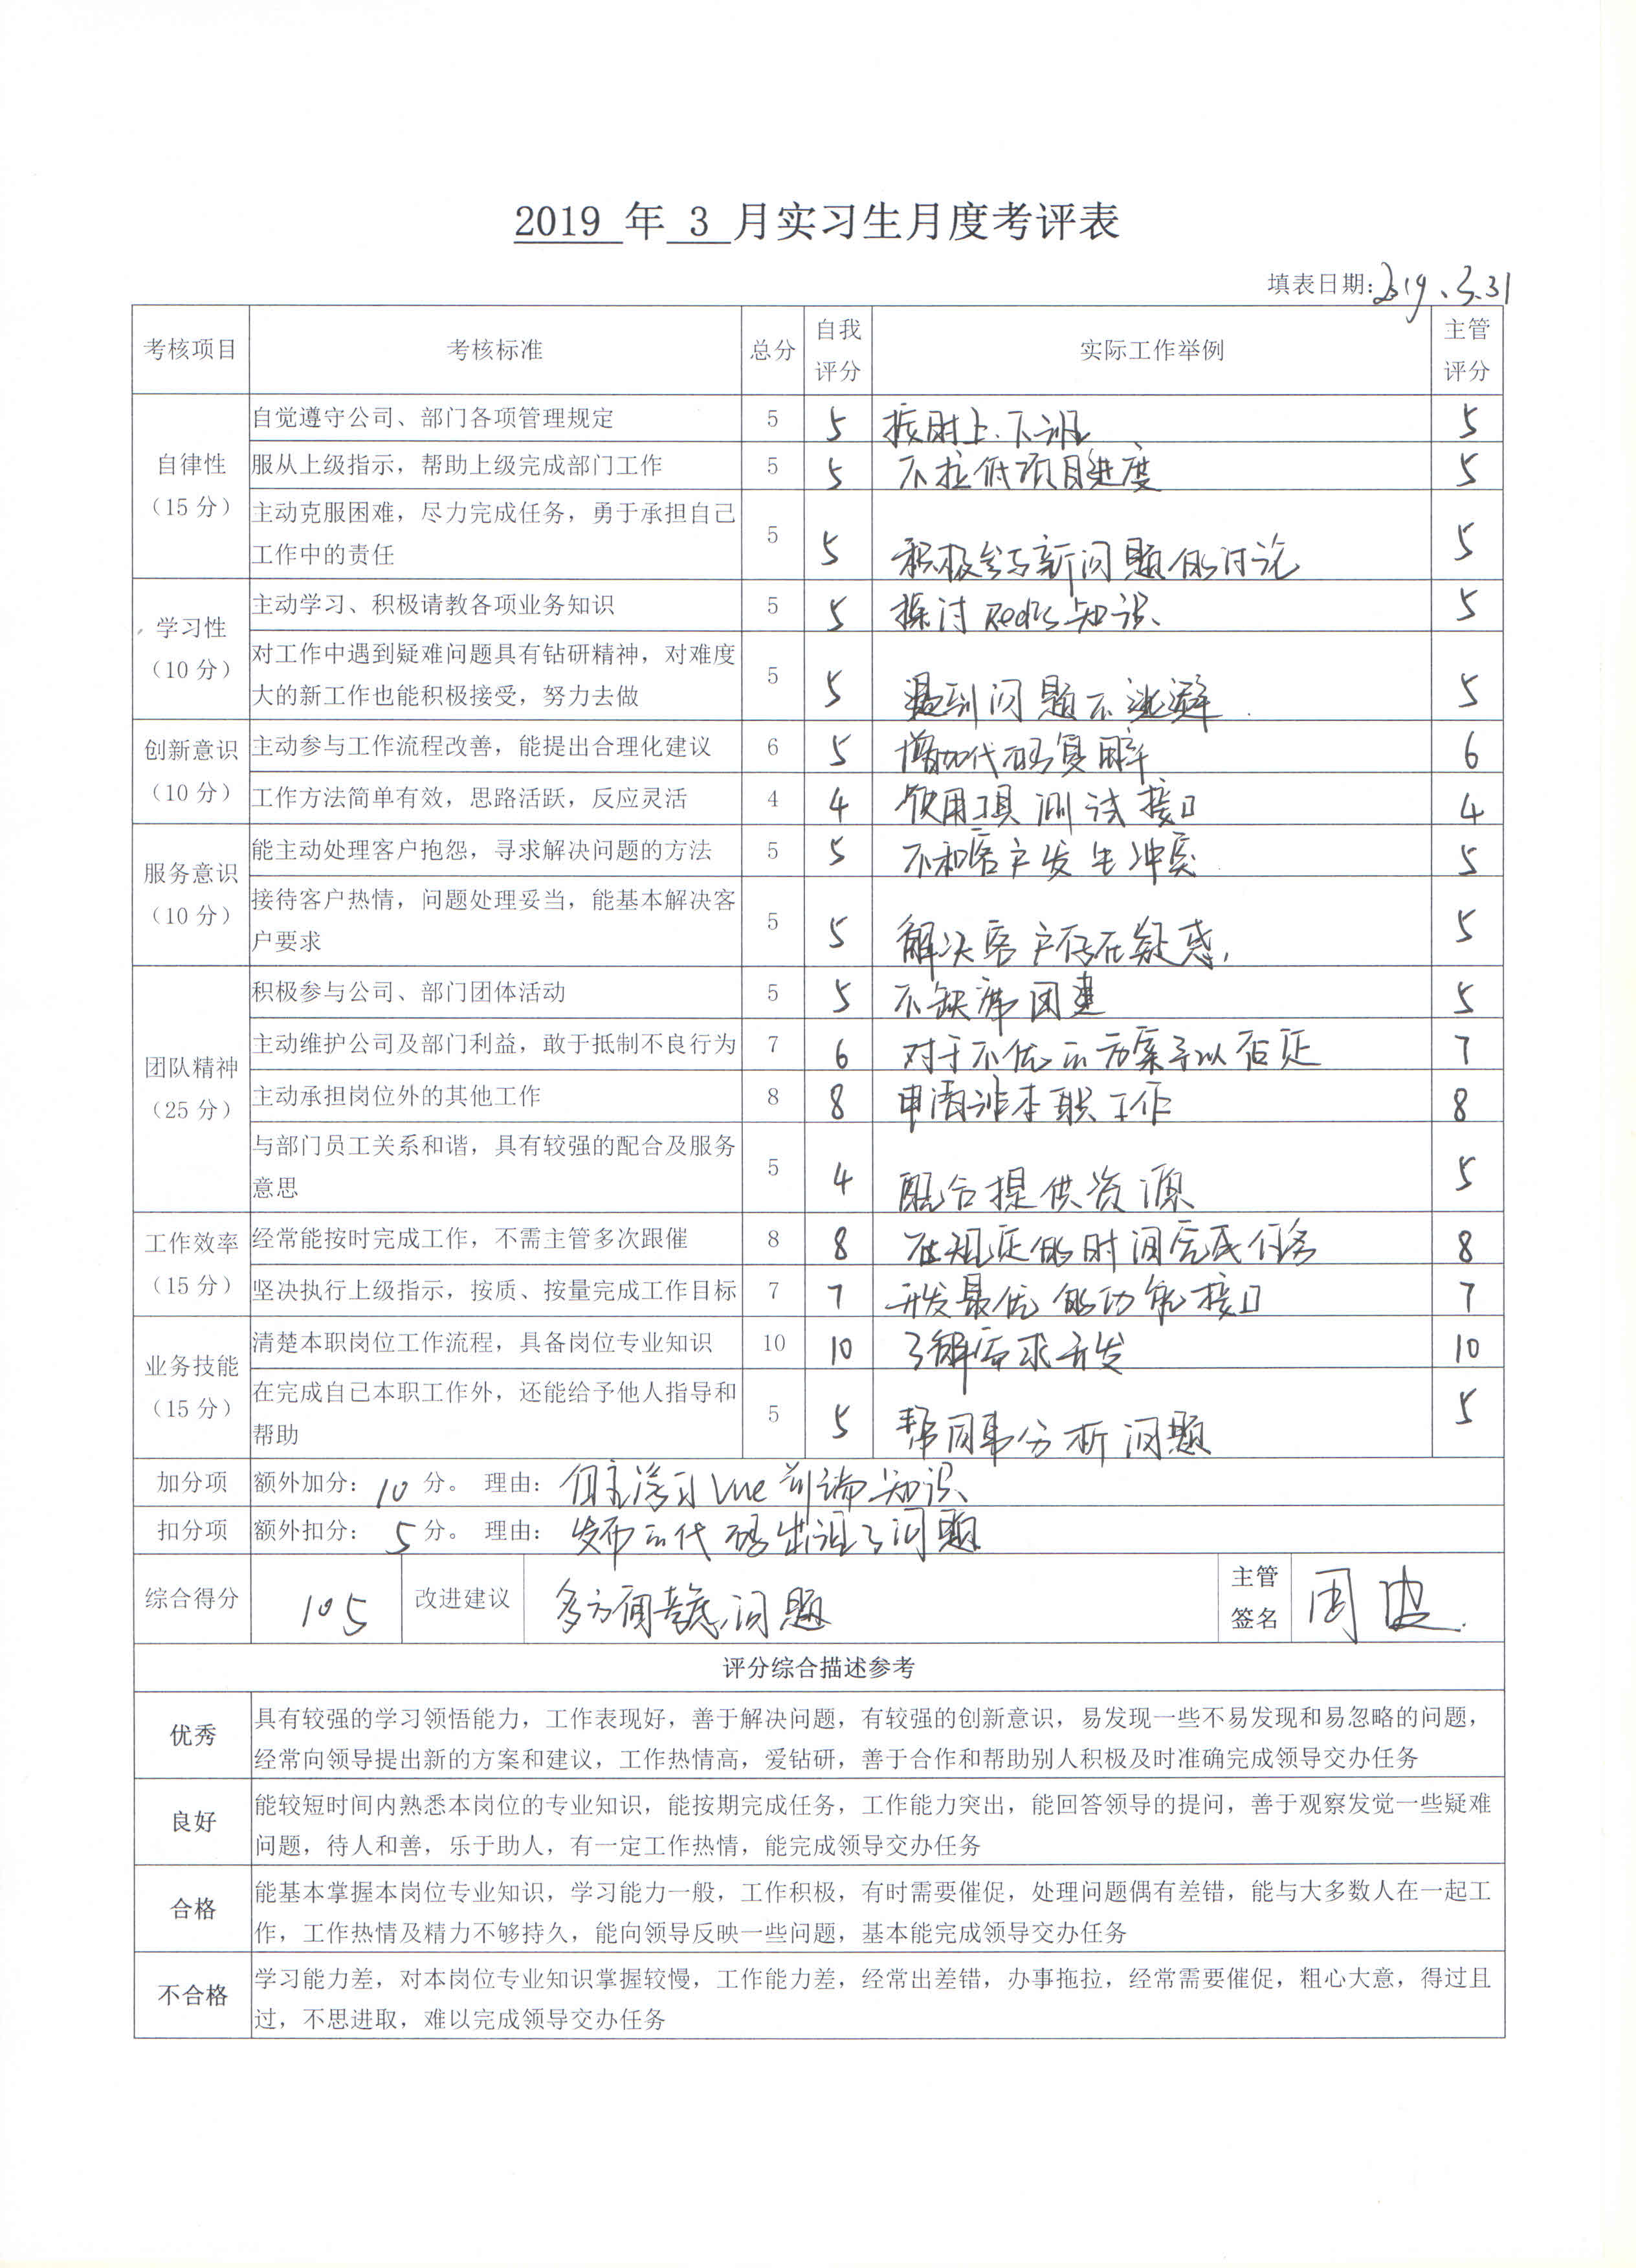 2019 年 3 月实习生月度考评表
填表日期：2019.3.31
考核项目 考核标准 总分 自我评分 实际工作举例 主管评分
自律性（15 分）
自觉遵守公司、部门各项管理规定 5 5 按时上.下班 5
服从上级指示，帮助上级完成部门工作 5 5 不拉低项目进度 5
主动克服困难，尽力完成任务，勇于承担自己
工作中的责任 5 5 积极参与新问题的讨论 5
学习性（10 分）
主动学习、积极请教各项业务知识 5 5 探讨Redis知识、 5
对工作中遇到疑难问题具有钻研精神，对难度
大的新工作也能积极接受，努力去做 5 5 遇到问题不逃避. 5
创新意识（10 分）
主动参与工作流程改善，能提出合理化建议 6 5 增加代码复用率 6
工作方法简单有效，思路活跃，反应灵活 4 4 使用工具测试接口 4
服务意识（10 分）
能主动处理客户抱怨，寻求解决问题的方法 5 5 不和客户发生冲突 5
接待客户热情，问题处理妥当，能基本解决客
户要求 5 5 解决客户存在疑惑. 5
团队精神（25 分）
积极参与公司、部门团体活动 5 5 不缺席团建 5
主动维护公司及部门利益，敢于抵制不良行为 7 6 对于不优的方案予以否定 7
主动承担岗位外的其他工作 8 8 申请非本职工作 8
与部门员工关系和谐，具有较强的配合及服务
意思 5 4 配合提供资源 5
工作效率（15 分）
经常能按时完成工作，不需主管多次跟催 8 8 在规定的时间完成任务 8
坚决执行上级指示，按质、按量完成工作目标 7 7 开发最优的功能接口 7
业务技能（15 分）
清楚本职岗位工作流程，具备岗位专业知识 10 10 了解需求开发 10
在完成自己本职工作外，还能给予他人指导和
帮助 5 5 帮同事分析问题 5
加分项 额外加分：10 分。 理由：自主学习Vue前端知识、
扣分项 额外扣分：5 分。 理由：发布的代码出现了问题
综合得分 105 改进建议 多方面考虑问题 主管签名 周波.
评分综合描述参考
优秀
具有较强的学习领悟能力，工作表现好，善于解决问题，有较强的创新意识，易发现一些不易发现和易忽略的问题，
经常向领导提出新的方案和建议，工作热情高，爱钻研，善于合作和帮助别人积极及时准确完成领导交办任务
良好
能较短时间内熟悉本岗位的专业知识，能按期完成任务，工作能力突出，能回答领导的提问，善于观察发觉一些疑难
问题，待人和善，乐于助人，有一定工作热情，能完成领导交办任务
合格
能基本掌握本岗位专业知识，学习能力一般，工作积极，有时需要催促，处理问题偶有差错，能与大多数人在一起工
作，工作热情及精力不够持久，能向领导反映一些问题，基本能完成领导交办任务
不合格
学习能力差，对本岗位专业知识掌握较慢，工作能力差，经常出差错，办事拖拉，经常需要催促，粗心大意，得过且
过，不思进取，难以完成领导交办任务